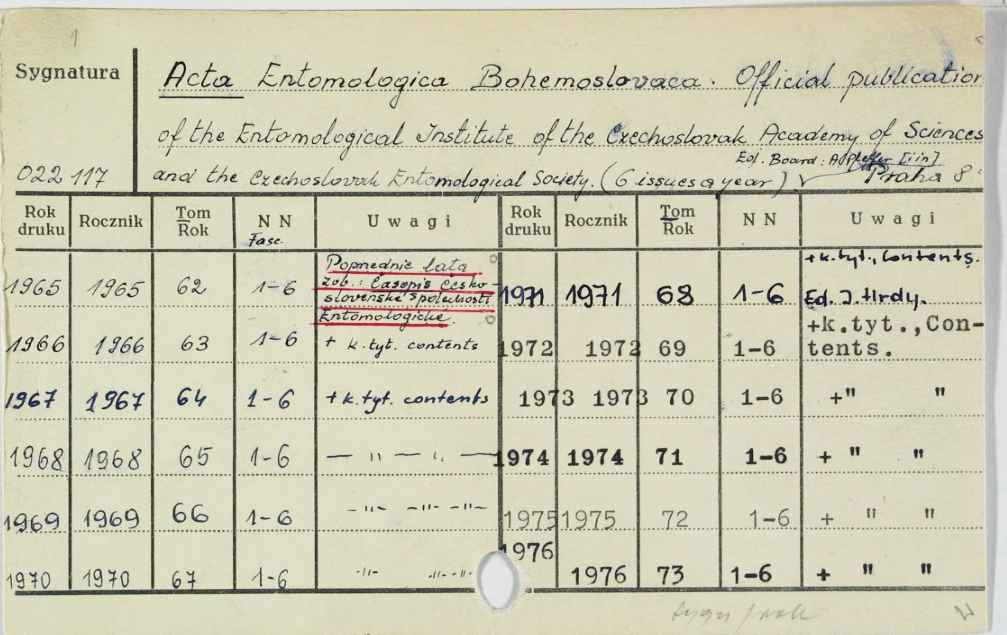 1
Sygnatura
Acta Entomologica Bohemoslovaca. Official publication
of the Entomological Institute of the Czechoslovak Academy of Sciences
Ed. Board: A. Pfeffer [iin]
022 117 and the Czechoslovak Entomological Society. (6 issues a year) Praha 8
Rok druku Rocznik Tom Rok N N Fasc. U w a g i Rok druku Rocznik Tom Rok N N U w a g i
Poprzednie lata
zob.: Časopis Česko-
slovenské společnosti
Entomologické.
1965 1965 62 1-6
+ k.tyt., contents.
1971 1971 68 1-6 Ed. J. Hrdy.
1966 1966 63 1-6 + k.tyt. contents
1972 1972 69 1-6 +k.tyt.,Con-
tents.
1967 1967 64 1-6 + k.tyt. contents 1973 1973 70 1-6 +" "
1968 1968 65 1-6 — " — " — 1974 1974 71 1-6 + " "
1969 1969 66 1-6 -"- -"- -"- 1975 1975 72 1-6 + " "
1970 1970 67 1-6 -"- -"- -"- 1976 1976 73 1-6 + " "